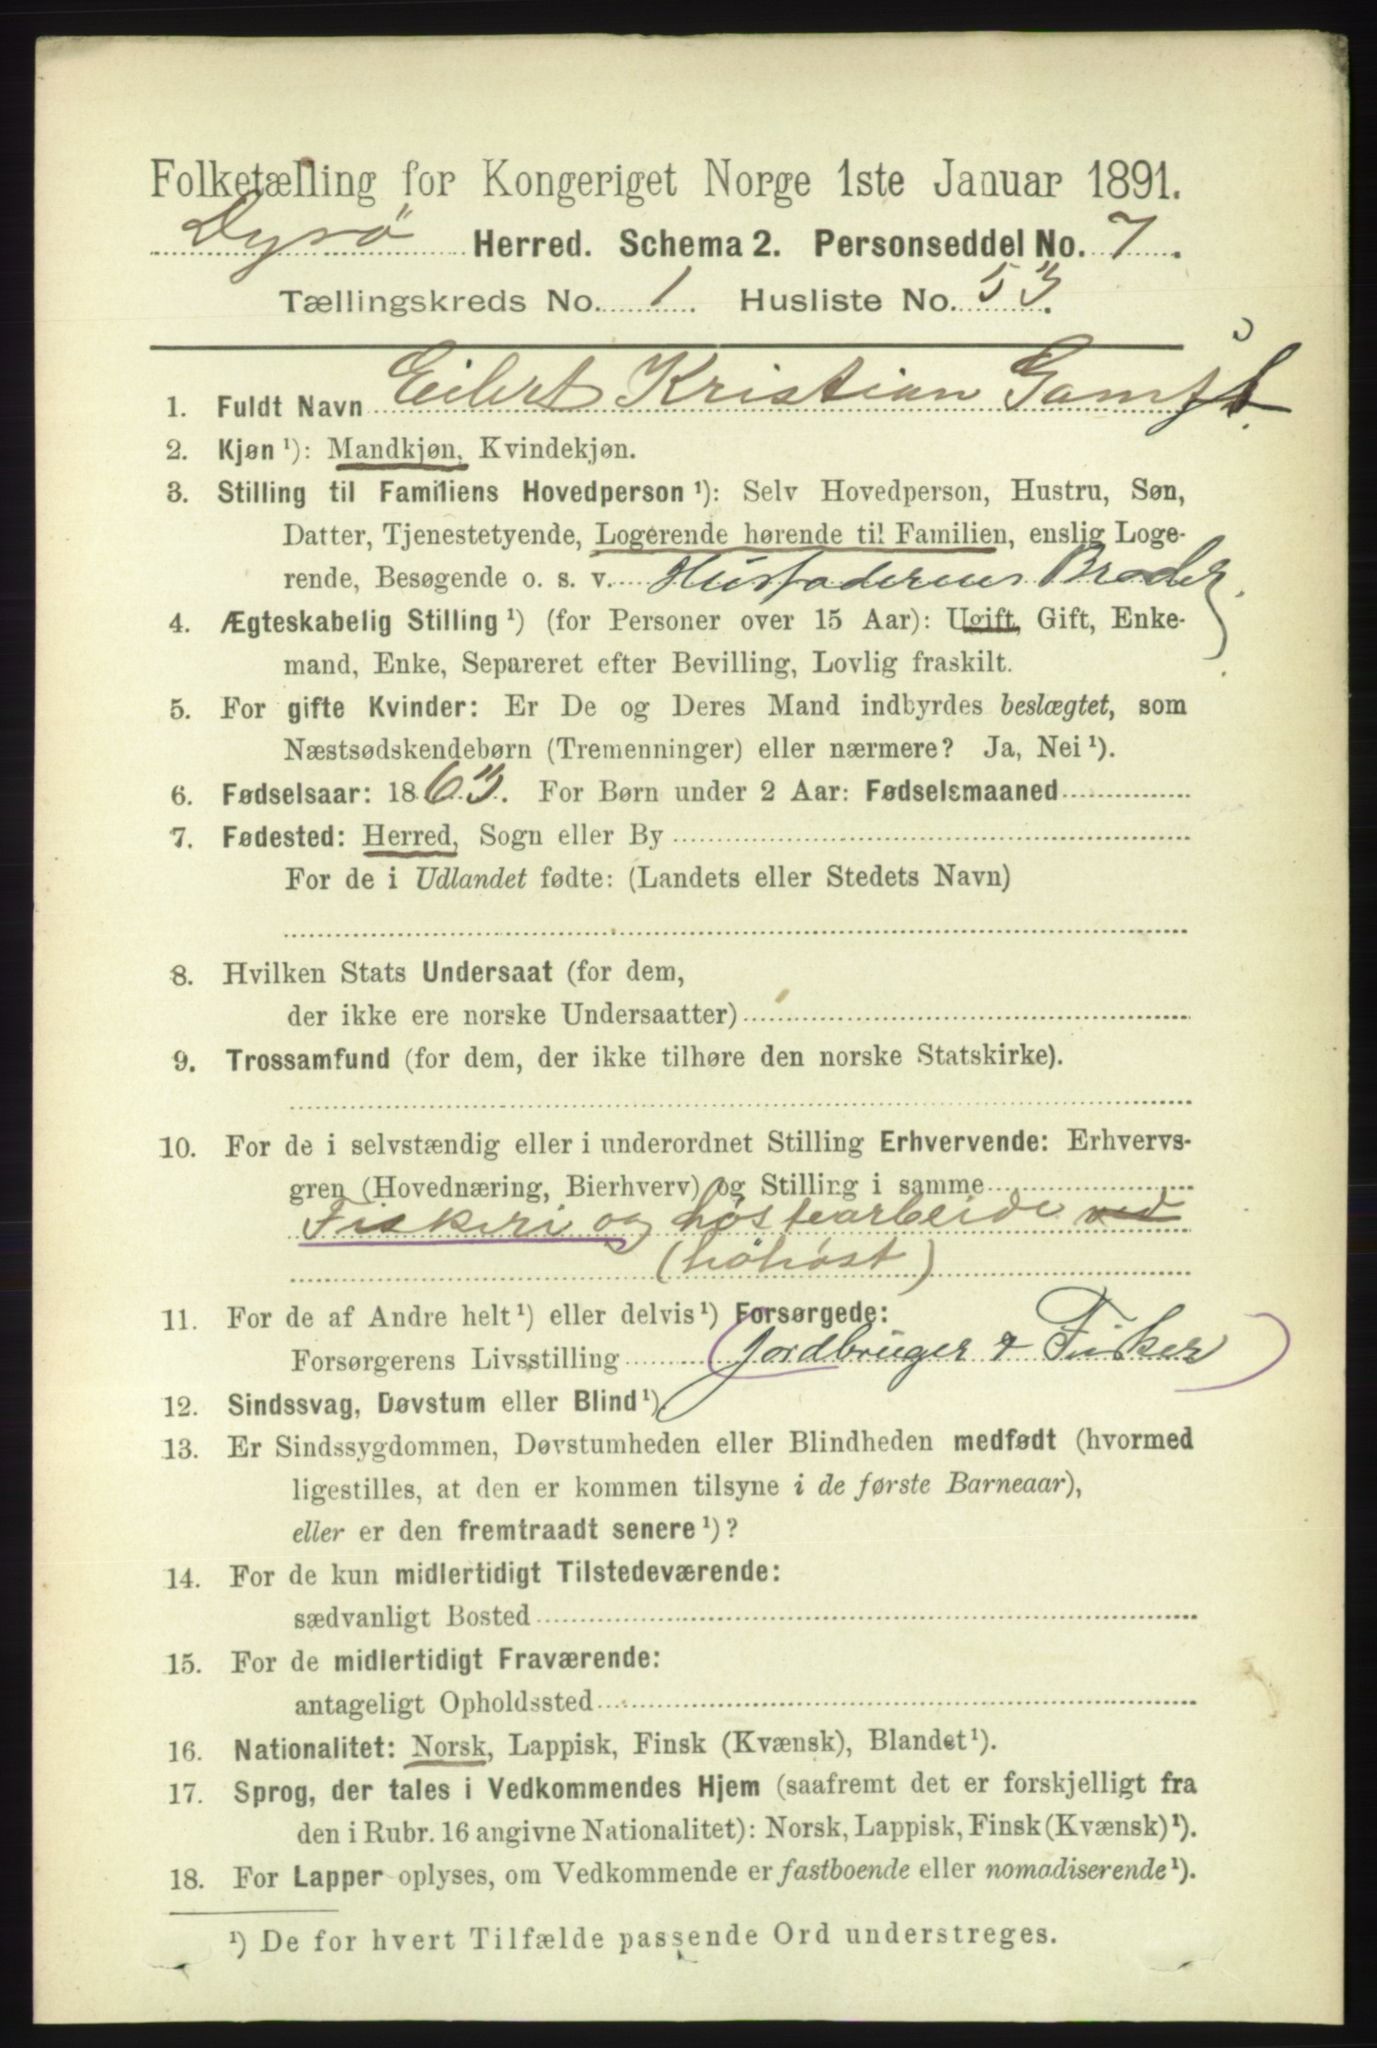 Folketælling for Kongeriget Norge 1ste Januar 1891.
Dyrø Herred. Schema 2. Personseddel No. 7.
Tællingskreds No. 1 Husliste No. 53.
1. Fuldt Navn Eilert Kristian
2. Kjøn ¹): Mandkjøn, Kvindekjøn.
3. Stilling til Familiens Hovedperson ¹): Selv Hovedperson, Hustru, Søn,
Datter, Tjenestetyende, Logerende hørende til Familien, enslig Loge-
rende, Besøgende o. s. v. Husfaderens Broder.
4. Ægteskabelig Stilling ¹) (for Personer over 15 Aar): Ugift, Gift, Enke-
mand, Enke, Separeret efter Bevilling, Lovlig fraskilt.
5. For gifte Kvinder: Er De og Deres Mand indbyrdes beslægtet, som
Næstsødskendebørn (Tremenninger) eller nærmere? Ja, Nei ¹).
6. Fødselsaar: 1863. For Børn under 2 Aar: Fødselsmaaned
7. Fødested: Herred, Sogn eller By
For de i Udlandet fødte: (Landets eller Stedets Navn)
8. Hvilken Stats Undersaat (for dem,
der ikke ere norske Undersaatter)
9. Trossamfund (for dem, der ikke tilhøre den norske Statskirke).
10. For de i selvstændig eller i underordnet Stilling Erhvervende: Erhvervs-
gren (Hovednæring, Bierhverv) og Stilling i samme
Fiskeri og høstearbeide ved
(høhøst)
11. For de af Andre helt ¹) eller delvis ¹) Forsørgede:
Forsørgerens Livsstilling (Jordbruger & Fisker)
12. Sindssvag, Døvstum eller Blind ¹),
13. Er Sindssygdommen, Døvstumheden eller Blindheden medfødt (hvormed
ligestilles, at den er kommen tilsyne i de første Barneaar),
eller er den fremtraadt senere ¹)?
14. For de kun midlertidigt Tilstedeværende:
sædvanligt Bosted
15. For de midlertidigt Fraværende:
antageligt Opholdssted
16. Nationalitet: Norsk, Lappisk, Finsk (Kvænsk), Blandet ¹).
17. Sprog, der tales i Vedkommendes Hjem (saafremt det er forskjelligt fra
den i Rubr. 16 angivne Nationalitet): Norsk, Lappisk, Finsk (Kvænsk) ¹).
18. For Lapper oplyses, om Vedkommende er fastboende eller nomadiserende ¹).
¹) De for hvert Tilfælde passende Ord understreges.